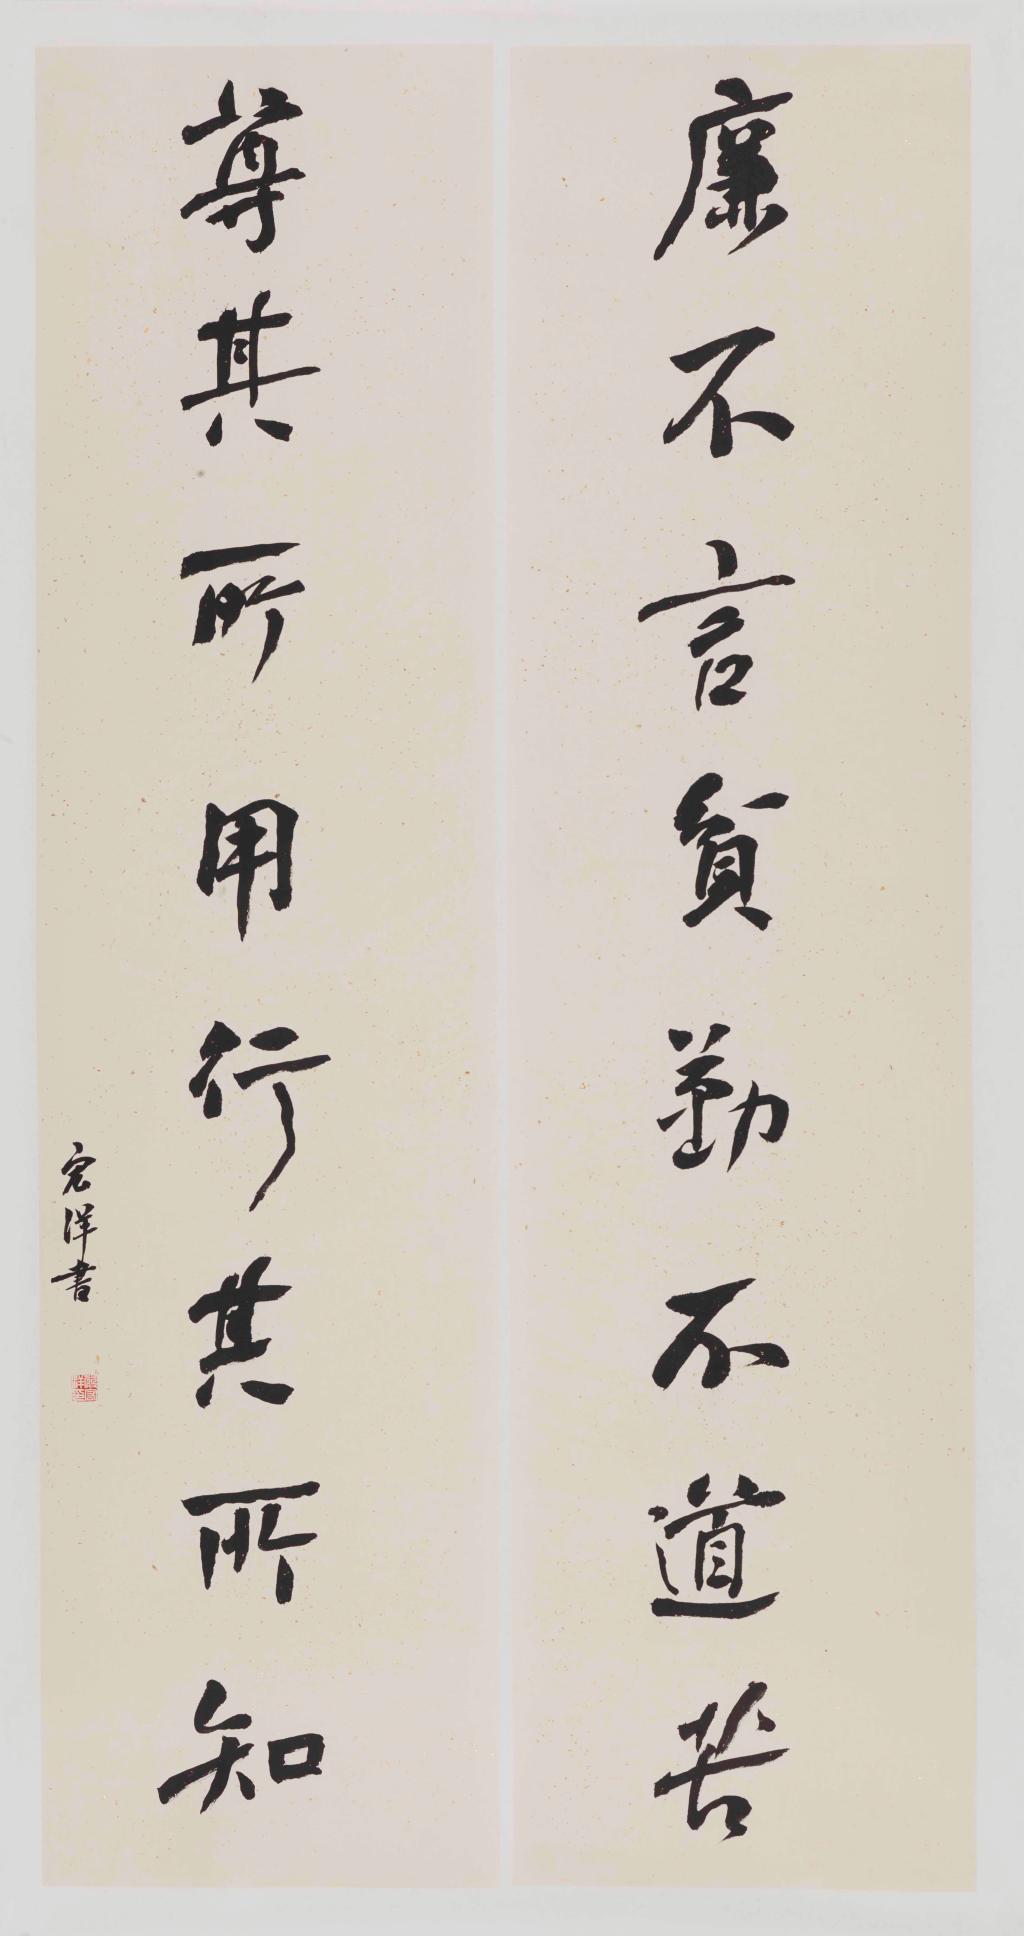 廉不言貧勤不道苦
尊其所用行其所知
宏洋書